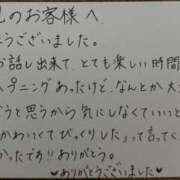 のお客様へ
うございました。
お話し出来て、とても楽しい時間
プニングあったけど、なんとか大
うと思うから気にしないでく
かわいくてびっくりした」って言ってく
かったです!!ありがとう。
♡ありがとうございました♡